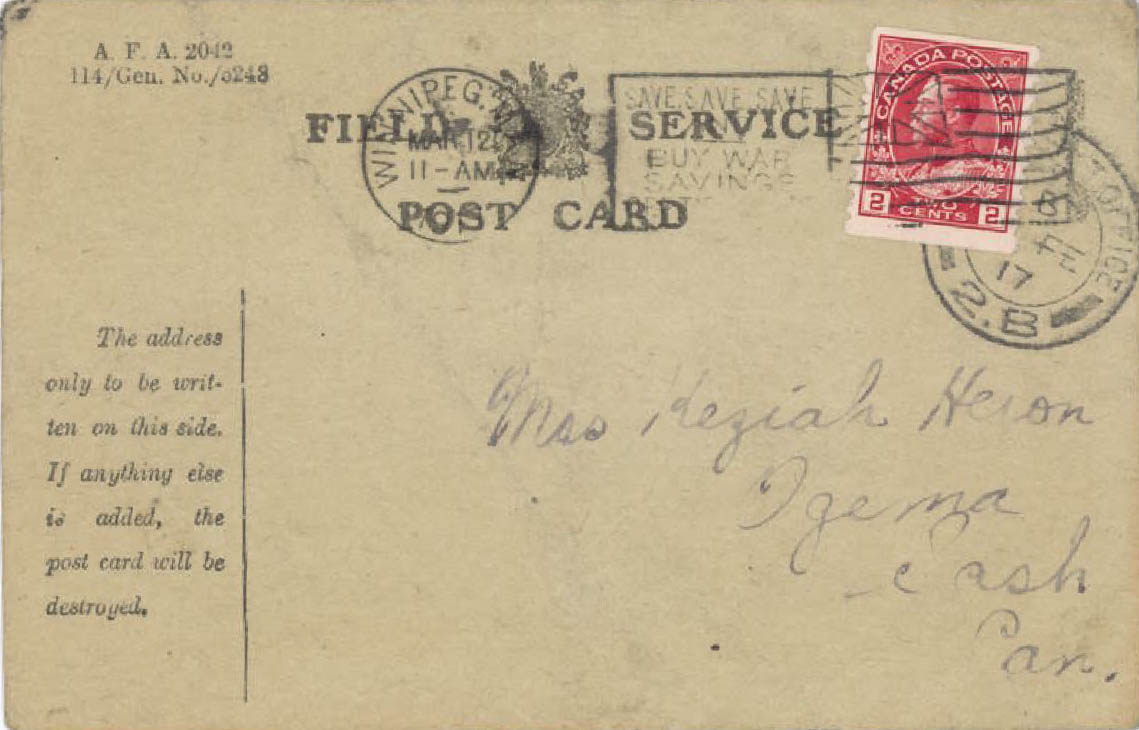 A. F. A. 2042
114/Gen. No./5248
FIELD SERVICE
POST CARD
WINNIPEG. M
MAR 12
11 - AM
SAVE, SAVE, SAVE
BUY WAR
SAVINGS
CANADA POSTAGE
2 TWO CENTS 2
OFFICE
17
2.B
The address
only to be writ-
ten on this side.
If anything else
is added, the
post card will be
destroyed.
Miss Keziah Heron
Ogema
Sask
Can.